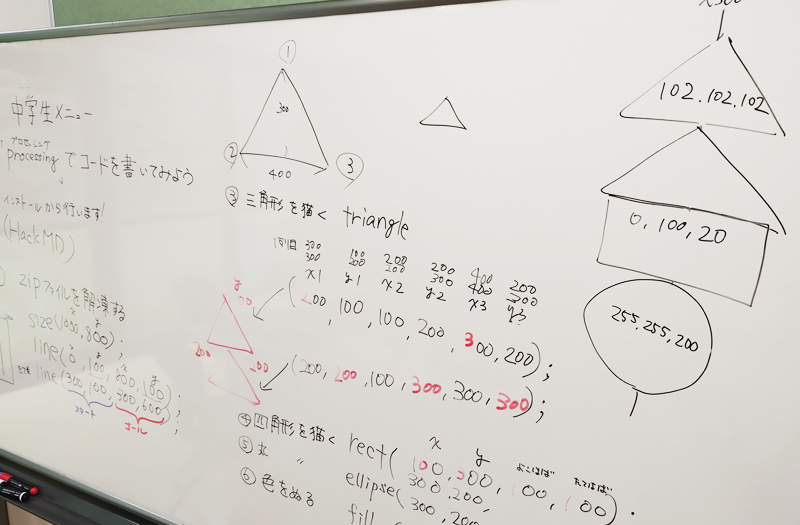 中学生メニュー
プロセッシング
processing でコードを書いてみよう
インストールから行います!
(HackMD)
zipファイルを解凍する
size(1000,800);
line(0,100,
line(300,100,300,600);
スタート
ゴール
①
300
②
③
400
③ 三角形を描く triangle
300 100 200 200 400 200
300 200 200 300 400 300
x1 y1 x2 y2 x3 y3
00,100,100,200,300,200);
(200,200,100,300,300,300);
200
④四角形を描く rect(
x y よこはば たてはば
100, 00, 100, 100).
⑤ 丸 〃 ellipse(
300,200,
⑥ 色をぬる fill
300,200
102.102.102
0,100,20
255,255,200